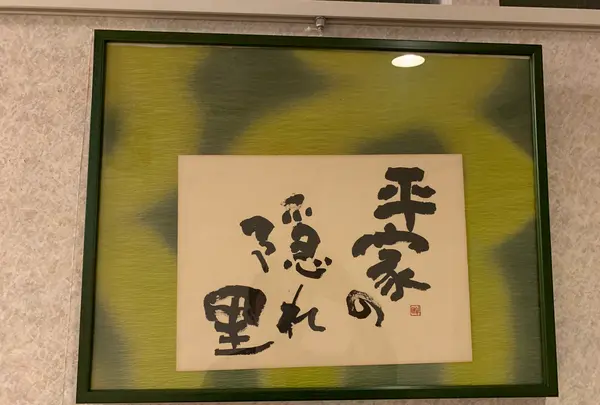 平家の
隠れ
里